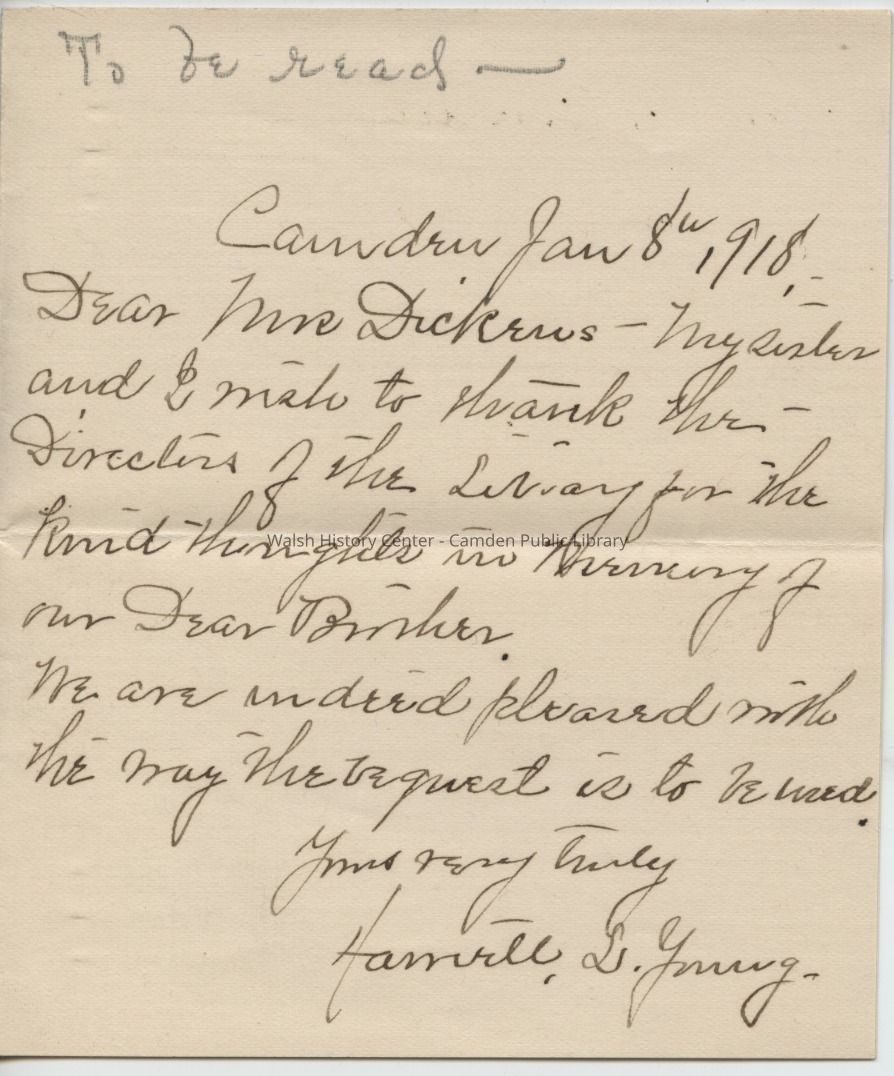 To be read —
Camden Jan 8th, 1918.
Dear Mrs Dickens – My sister
and I wish to thank the
Directors of the Library for the
kind thoughts in memory of
Walsh History Center - Camden Public Library
our Dear Brother.
We are indeed pleased with
the way the bequest is to be used.
Yours very truly
Harriett, L. Young.